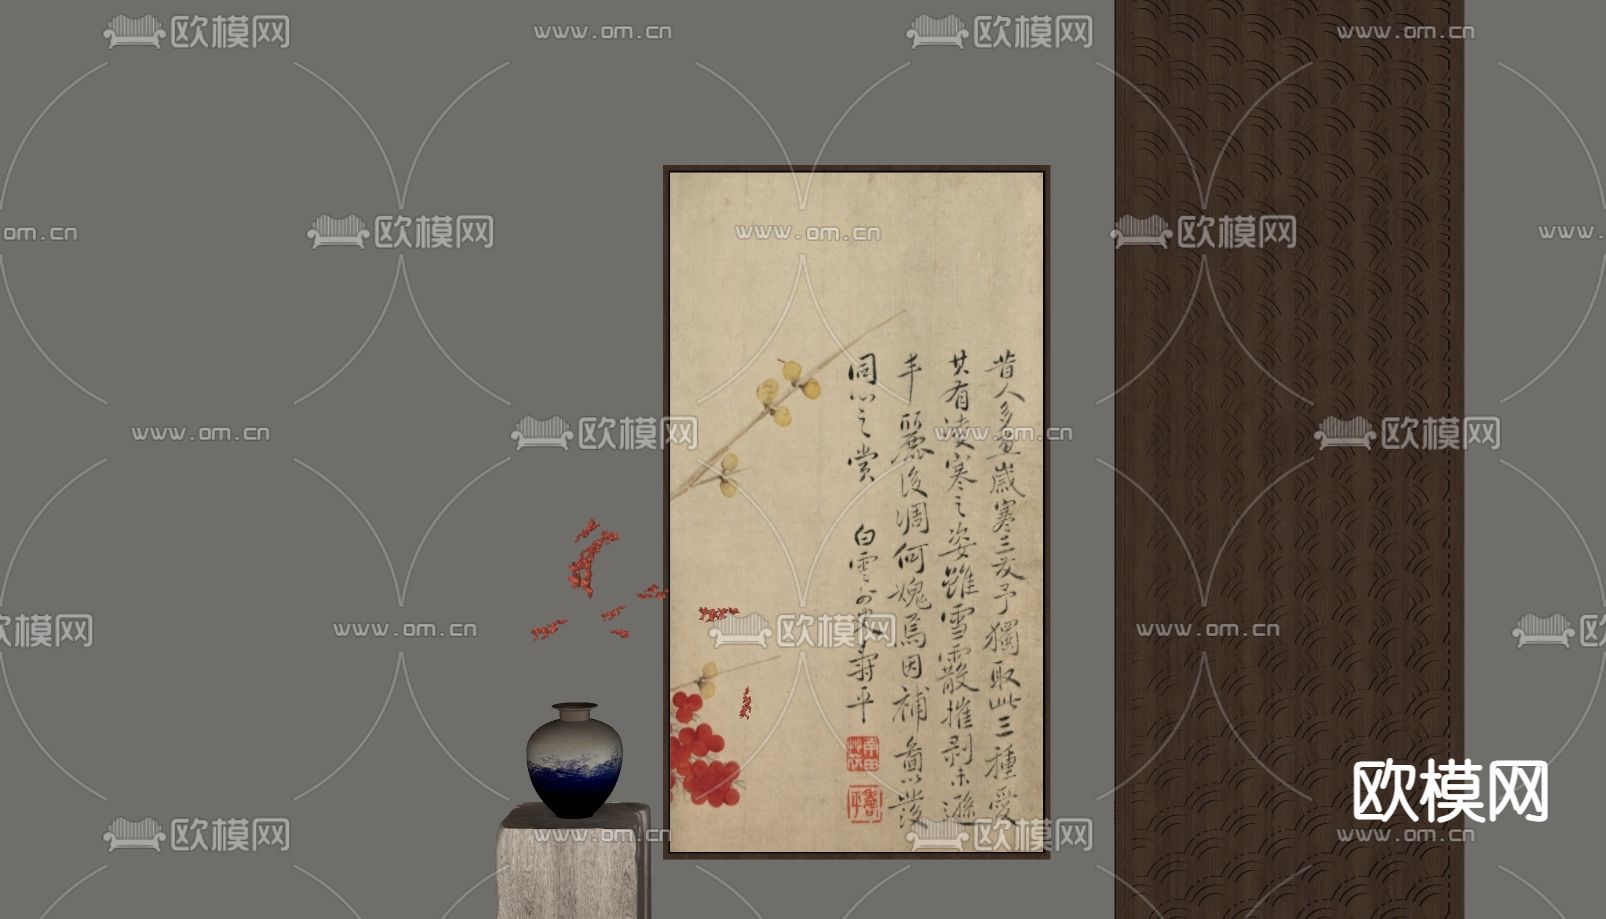 欧模网 www.om.cn 欧模网 www.om.cn
om.cn 欧模网 www.om.cn 欧模网 www.
www.om.cn 欧模网 www.om.cn 欧模网
欧模网 www.om.cn 欧模网 www.om.cn 欧
欧模网 www.om.cn 欧模网 www.om.cn
昔人多畫歲寒三友予獨取此三種愛
其有凌寒之姿雖雪霰摧剥未遜
丰麗後凋何媿焉因補圖以發
同心之賞 白雲外史壽平
南田草衣
壽平
欧模网